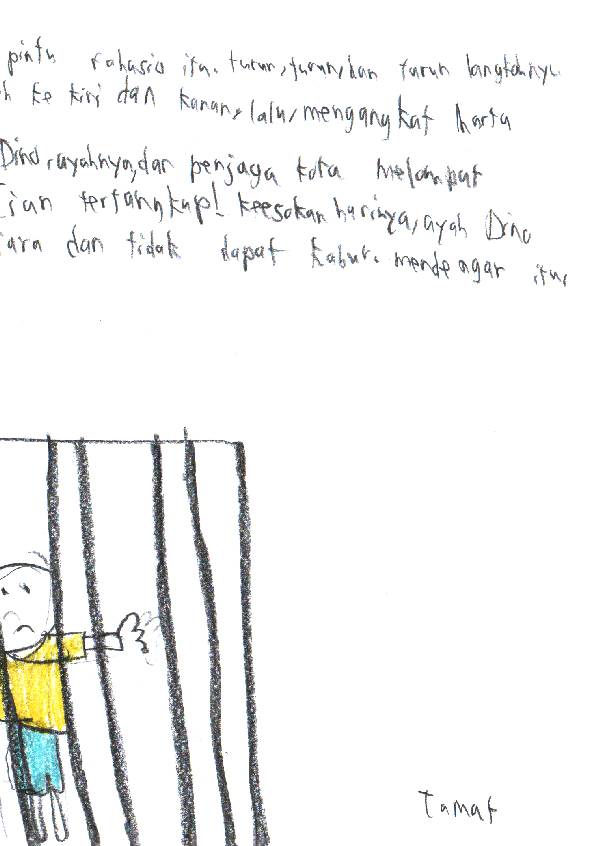 pintu rahasia itu. turun, turun, dan turun langkahnya
h ke kiri dan kanan, lalu, mengangkat harta
Dino, ayahnya, dan penjaga kota melompat
ian tertangkap! keesokan harinya, ayah Dino
jara dan tidak dapat kabur. mendengar itu,
Tamat